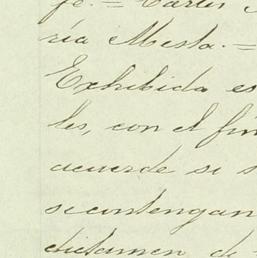 fe. = Carlos
ría Mesta. =
Exhibida es
les, con el fin
acuerde si s
se contengan
dictamen de